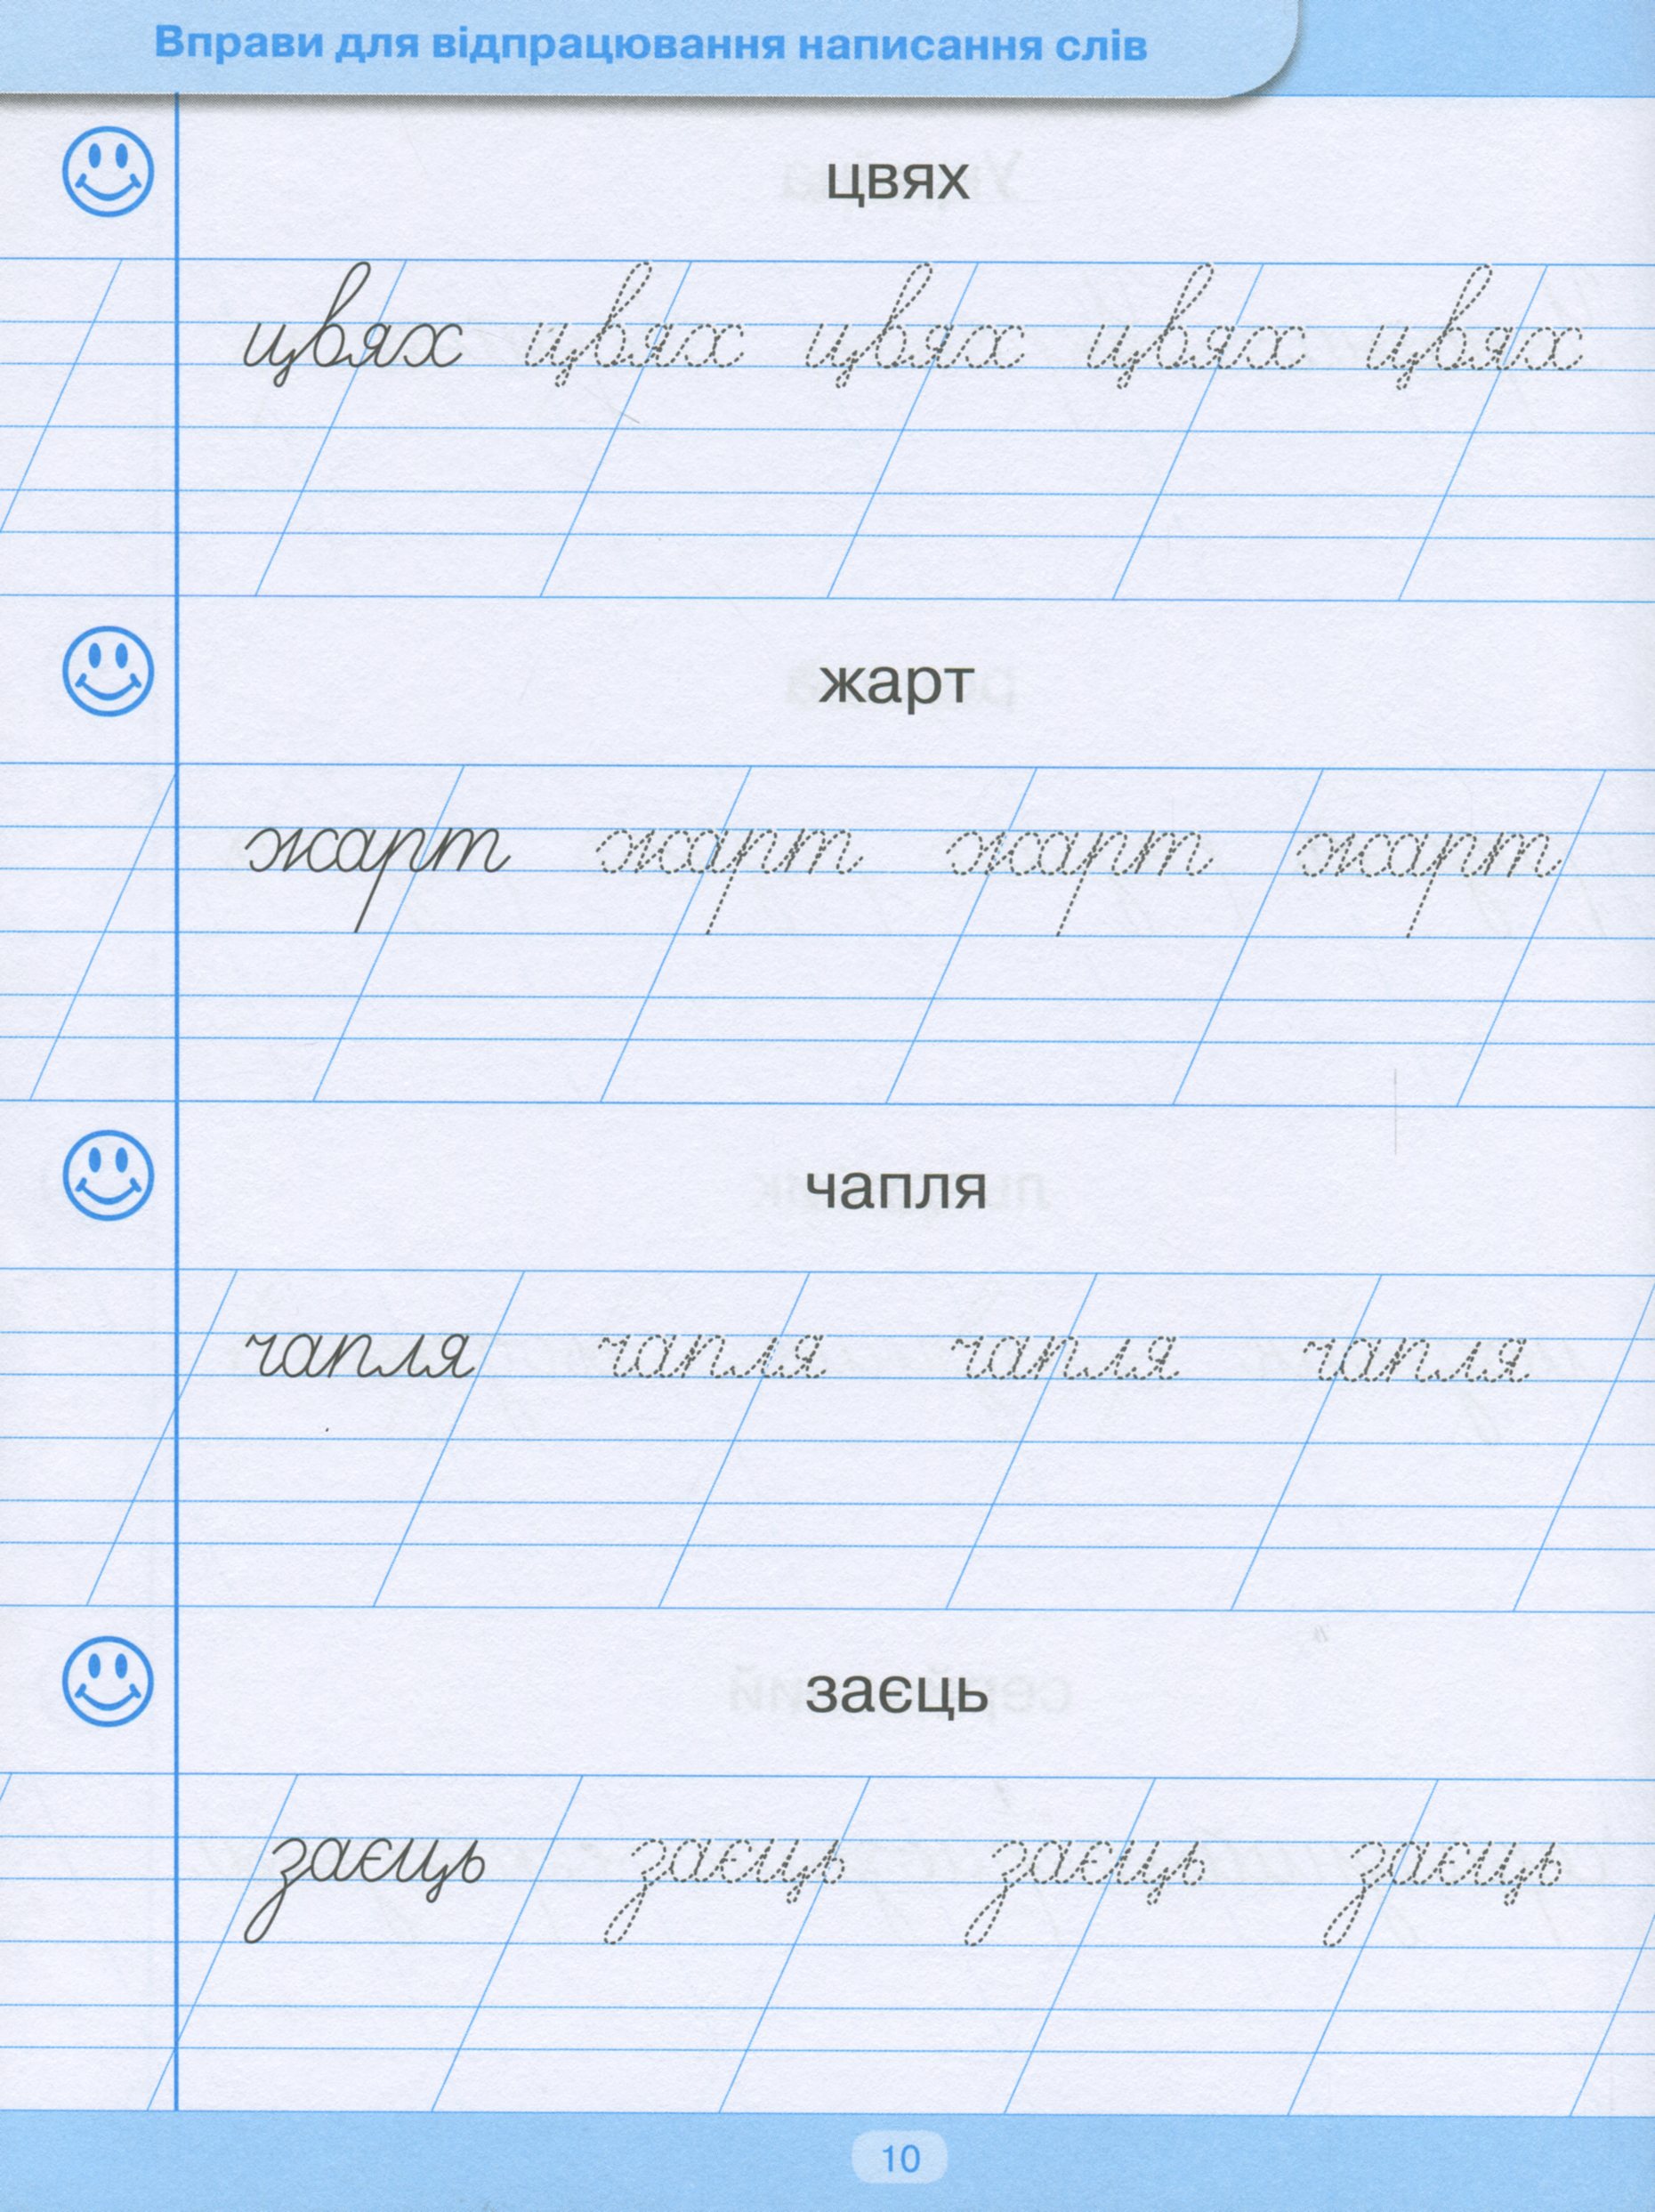 Вправи для відпрацювання написання слів
цвях
цвях цвях цвях цвях цвях
жарт
жарт жарт жарт жарт
чапля
чапля чапля чапля чапля
заєць
заєць заєць заєць заєць
10